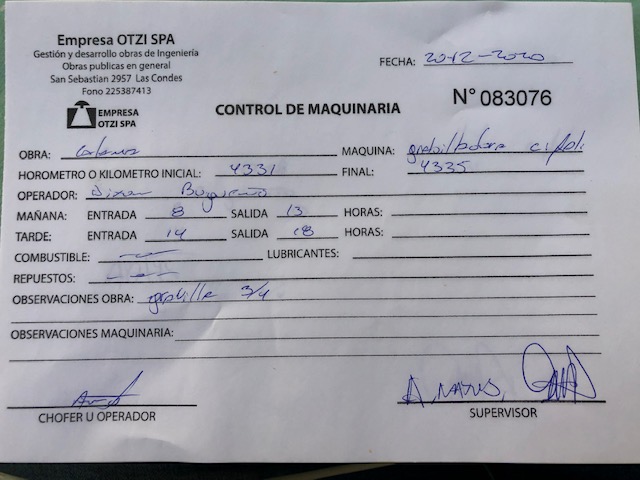 Empresa OTZI SPA
Gestión y desarrollo obras de Ingeniería
Obras publicas en general
San Sebastian 2957 Las Condes
Fono 225387413
EMPRESA
OTZI SPA
FECHA: 2012-2020
CONTROL DE MAQUINARIA
N° 083076
OBRA: MAQUINA:
HOROMETRO O KILOMETRO INICIAL: 4331 FINAL: 4335
OPERADOR:
MAÑANA: ENTRADA 8 SALIDA 13 HORAS:
TARDE: ENTRADA 14 SALIDA 18 HORAS:
COMBUSTIBLE: LUBRICANTES:
REPUESTOS:
OBSERVACIONES OBRA: gravilla 3/4
OBSERVACIONES MAQUINARIA:
CHOFER U OPERADOR
SUPERVISOR